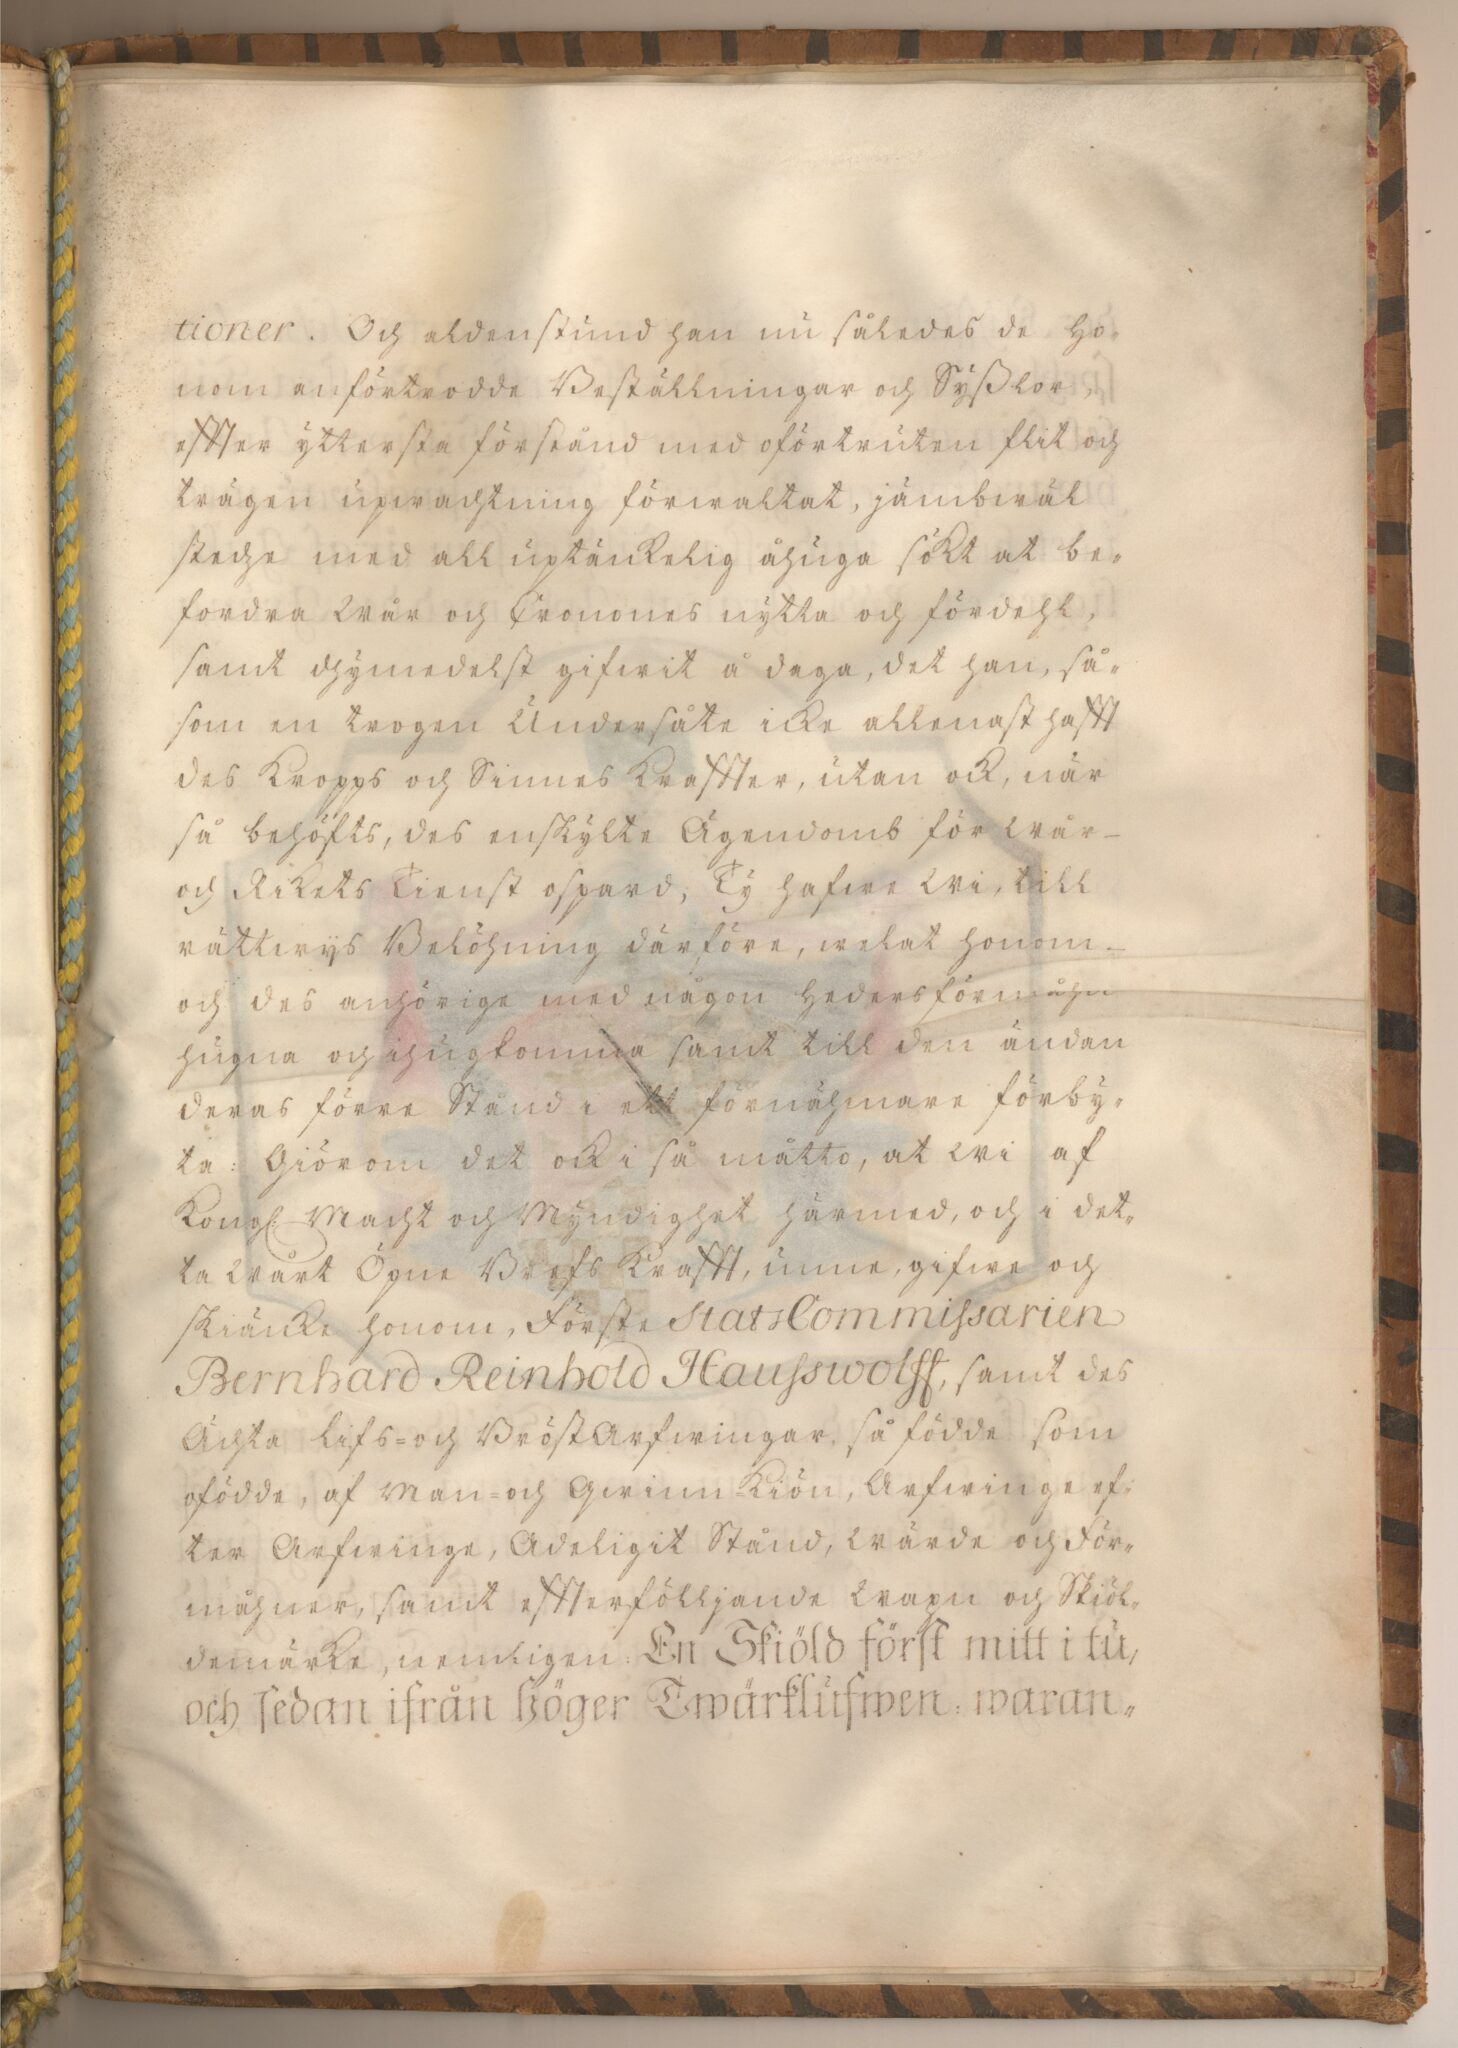 tioner. Och aldenstund han nu således de Ho-
nom anförtrodde Beställningar och Sysslor,
effter ytterste förstånd med oförtruten flit och
trägen upwachtning förwaltat, jämbwäl
stedze med all uptänckelig åhuga sökt at be-
fordra Wår och Cronones nytta och fördehl,
samt dhymedelst gifwit å daga, det han, så-
som en trogen Undersåte icke allenast hafft
des Kropps och Sinnes Kraffter, utan ock, när
så behöfts, des enskylte Ägendomb för Wår
och Rikets Tienst ospard; Ty hafwe Wi, till
rättwys Belöhning därföre, welat honom
och des anhörige med någon Hedersförmåhn
hugna och ihugkomma samt till den ändan
deras förre Stånd i ett förnähmare förby-
ta: Giörom det ock i så måtto, at Wi af
Kongl. Macht och Myndighet härmed, och i det-
ta Wårt Öpne Brefs Krafft, unne, gifwe och
skiäncke honom, Förste StatsCommissarien
Bernhard Reinhold Hausswolff, samt des
Ächta Lifs- och BröstArfwingar, så födde som
ofödde, af Man- och Qwinn-Kiön, Arfwinge ef-
ter Arfwinge, Adeligit Stånd, Wärde och För-
måhner, samt effterfölljande Wapn och Skiöl-
demärke, nemligen: En Skiöld först mitt i tu,
och sedan ifrån höger Twärklufwen: waran-